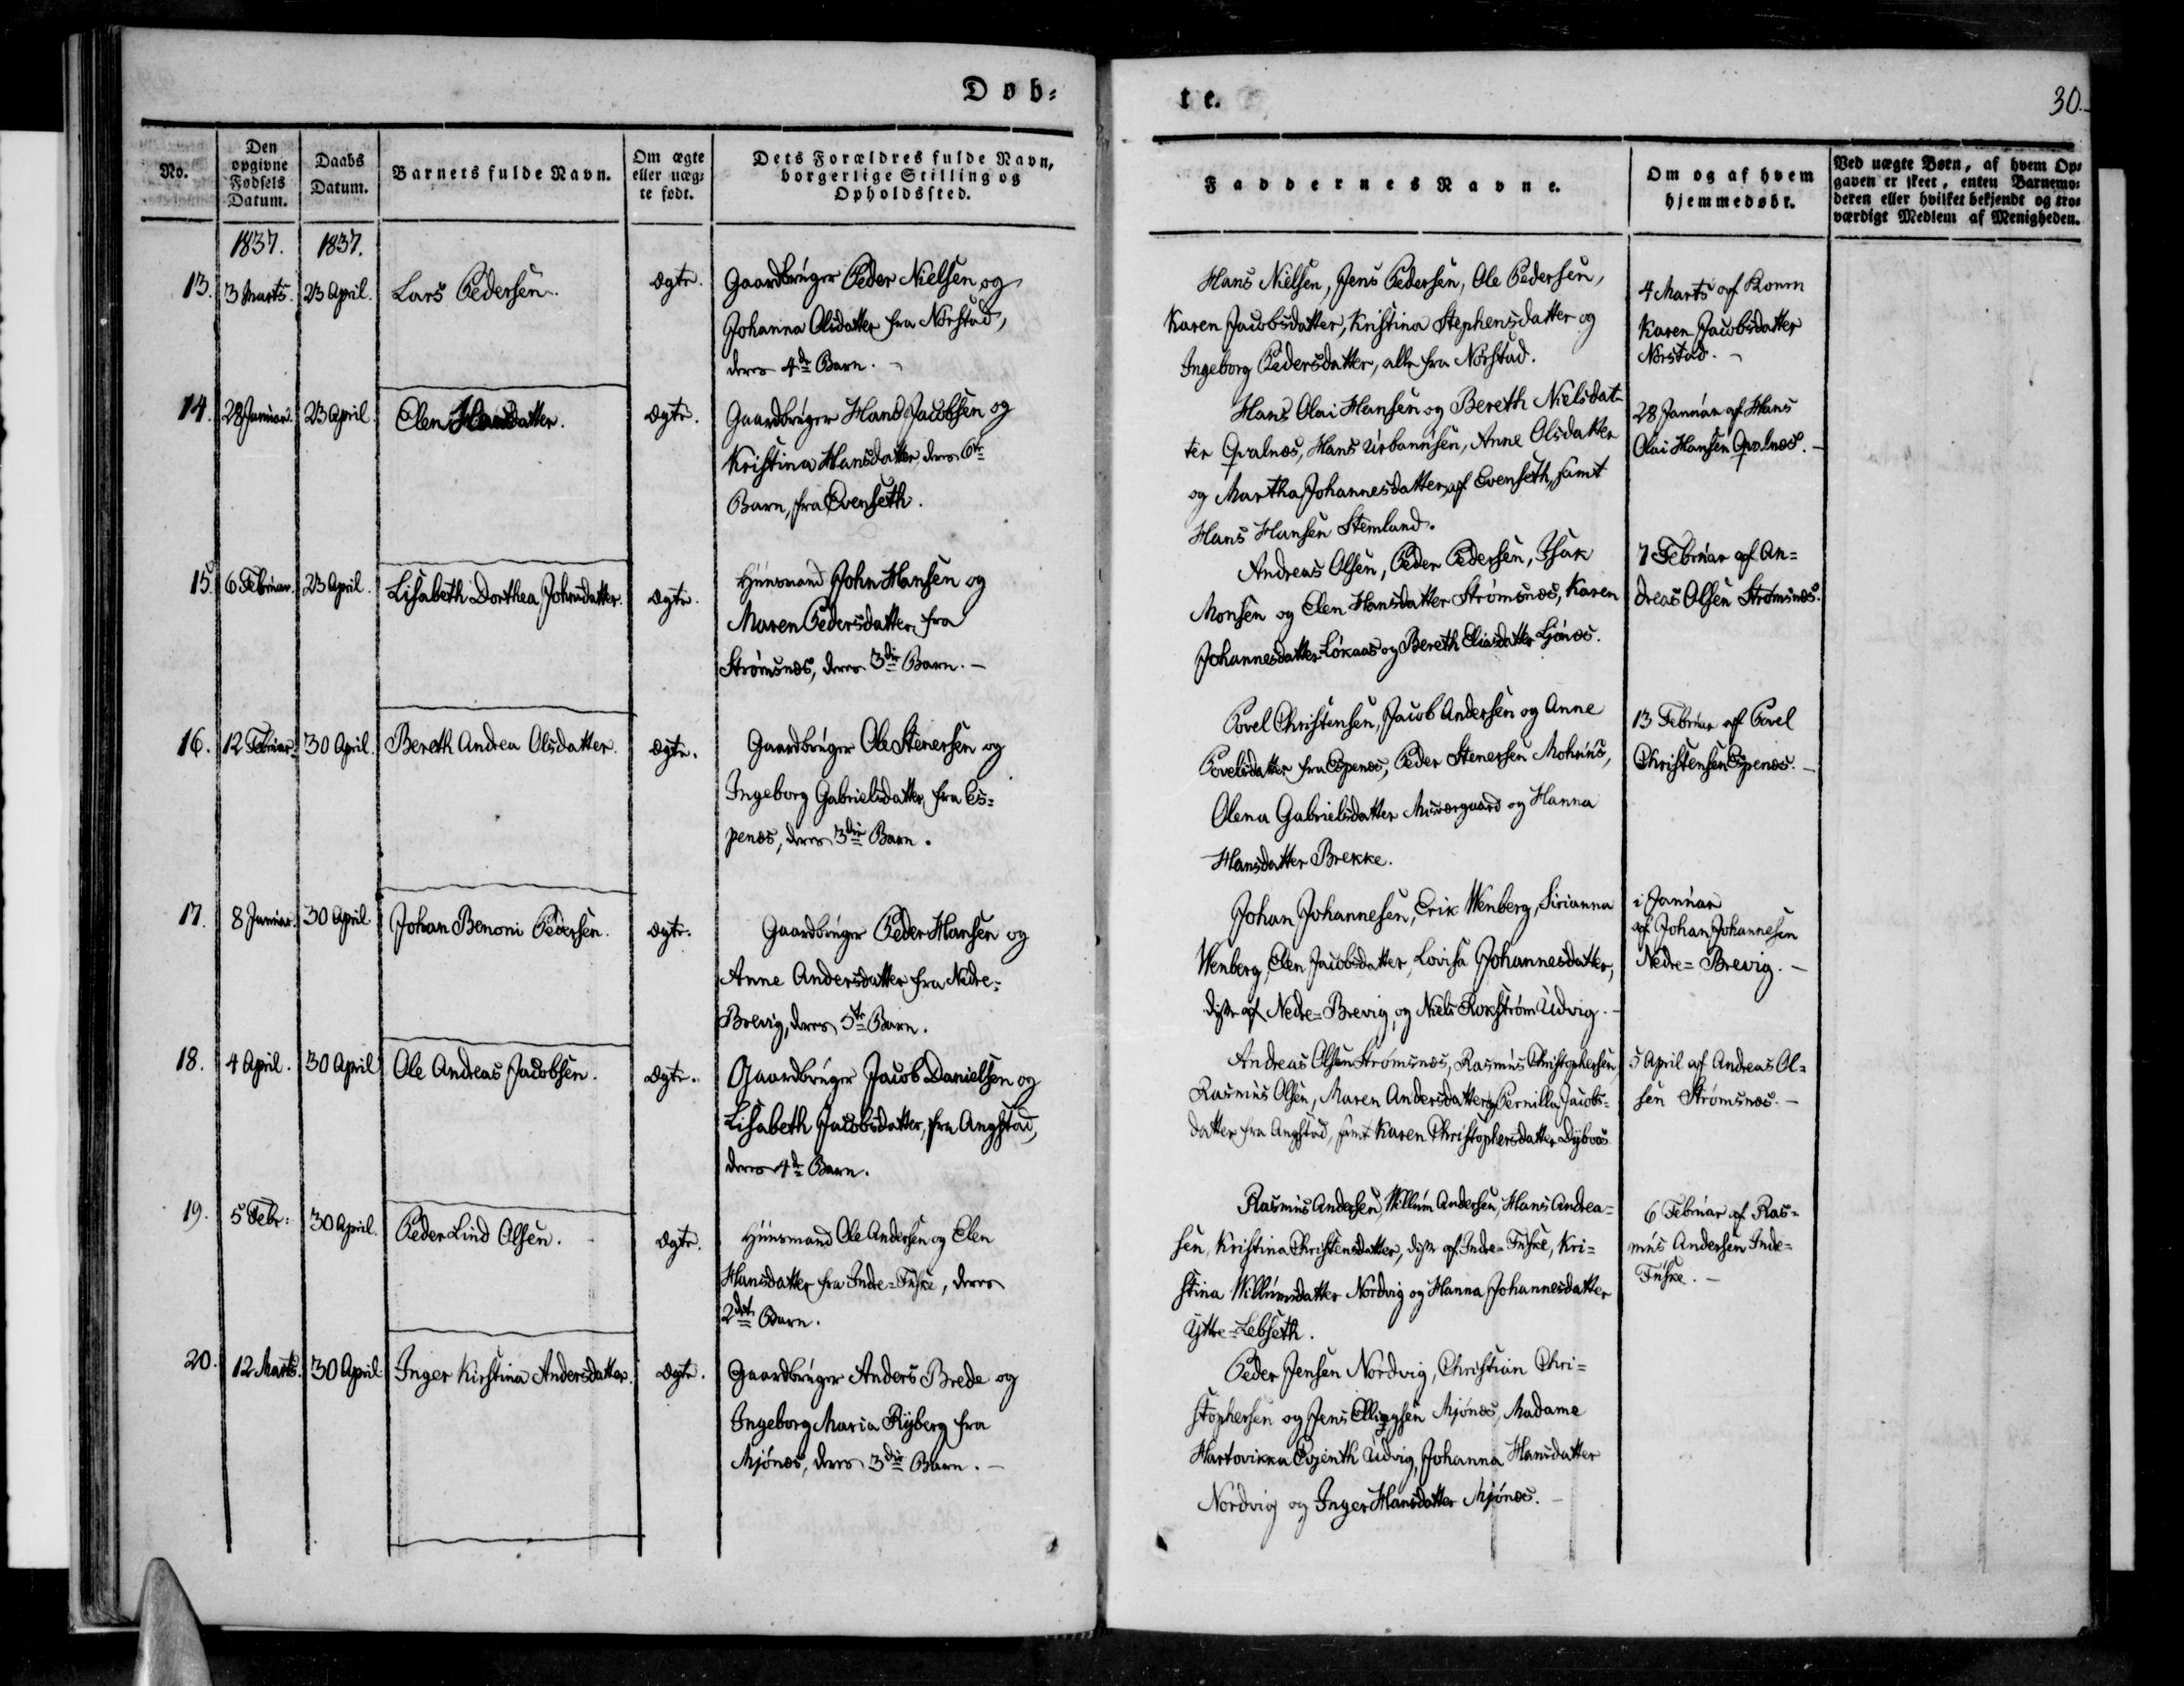 Døb-
te.
30.
No.
Den opgivne Fødsels Datum.
Daabs Datum.
Barnets fulde Navn.
Om ægte eller uæg- te født.
Dets Forældres fulde Navn, borgerlige Stilling og Opholdssted.
Faddernes Navne.
Om og af hvem hjemmedøbt.
Ved uægte Børn, af hvem Op-
gaven er skeet, enten Barnemo-
deren eller hvilket bekjendt og tro-
værdigt Medlem af Menigheden.
1837. 1837.
13. 3 Marts. 23 April. Lars Pedersen. ægte.
Gaardbruger Peder Nielsen og
Johanna Olsdatter fra Nørstad,
deres 4de Barn.
Hans Nielsen, Jens Pedersen, Ole Pedersen,
Karen Jacobsdatter, Kristina Stephensdatter og
Ingeborg Pedersdatter, alle fra Nørstad.
4 Marts af Konen
Karen Jacobsdatter
Nørstad.
14. 28 Januar. 23 April. Elen Hansdatter. ægte.
Gaardbruger Hans Jacobsen og
Kristina Hansdatter, deres 6te
Barn, fra Evenseth.
Hans Olai Hansen og Bereth Nielsdat-
ter Qvalnæs, Hans Urbannsen, Anne Olsdatter
og Martha Johannesdatter af Evenseth, samt
Hans Hansen Stemland.
28 Januar af Hans
Olai Hansen Qvalnæs.
15. 6 Februar. 23 April. Lisabeth Dorthea Johnsdatter. ægte.
Huusmand John Hansen og
Maren Pedersdatter fra
Strømsnæs, deres 3die Barn.
Andreas Olsen, Peder Pedersen, Isak
Monsen og Elen Hansdatter Strømsnæs, Karen
Johannesdatter Løkaas og Bereth Eliasdatter Ljønæs.
7 Februar af An-
dreas Olsen Strømsnæs.
16. 12 Februar. 30 April. Bereth Andrea Olsdatter. ægte.
Gaardbruger Ole Stenersen og
Ingeborg Gabrielsdatter, fra Es-
penæs, deres 3die Barn.
Povel Christensen, Jacob Andersen og Anne
Povelsdatter fra Espenæs, Peder Stenersen Mohuus,
Olena Gabrielsdatter Misværgaard og Hanna
Hansdatter Brekke.
13 Februar af Povel
Christensen Espenæs.
17. 8 Januar. 30 April. Johan Benoni Pedersen. ægte.
Gaardbruger Peder Hansen og
Anne Andersdatter fra Nedre-
Brevig, deres 5te Barn.
Johan Johannesen, Erik Wenberg, Sirianna
Wenberg, Elen Jacobsdatter, Lovisa Johannesdatter,
disse af Nedre-Brevig, og Niels Rokstrøm Udvig.
i Januar
af Johan Johannesen
Nedre-Brevig.
18. 4 April. 30 April. Ole Andreas Jacobsen. ægte.
Gaardbruger Jacob Danielsen og
Lisabeth Jacobsdatter, fra Angstad,
deres 4de Barn.
Andreas Olsen Strømsnæs, Rasmus Christophersen,
Rasmus Olsen, Maren Andersdatter, Pernilla Jacobs-
datter fra Angstad, samt Karen Christophersdatter Dybvas
5 April af Andreas Ol-
sen Strømsnæs.
19. 5 Febr: 30 April. Peder Lind Olsen. ægte.
Huusmand Ole Andersen og Elen
Hansdatter fra Indre-Fuske, deres
2det Barn.
Rasmus Andersen, Willum Andersen, Hans Andrea-
sen, Kristina Christensdatter, disse af Indre-Fuske, Kri-
stina Willumsdatter Nordvig og Hanna Johannesdatter
Ytre-Lebseth.
6 Februar af Ras-
mus Andersen Indre-
Fuske.
20. 12 Marts. 30 April. Inger Kirstina Andersdatter. ægte.
Gaardbruger Anders Brede og
Ingeborg Maria Ryberg fra
Mjønæs, deres 3die Barn.
Peder Jensen Nordvig, Christian Chri-
stophersen og Jens Ellingsen Mjønæs, Madame
Hartovikka Evjenth Udvig, Johanna Hansdatter
Nordvig og Inger Hansdatter Mjønæs.